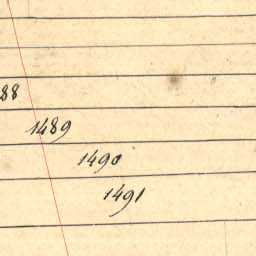 88
1489
1490
1491